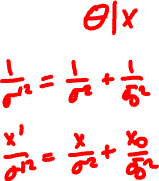 θ|x
1/σ'² = 1/σ² + 1/σ₀²
x'/σ'² = x/σ² + x₀/σ₀²